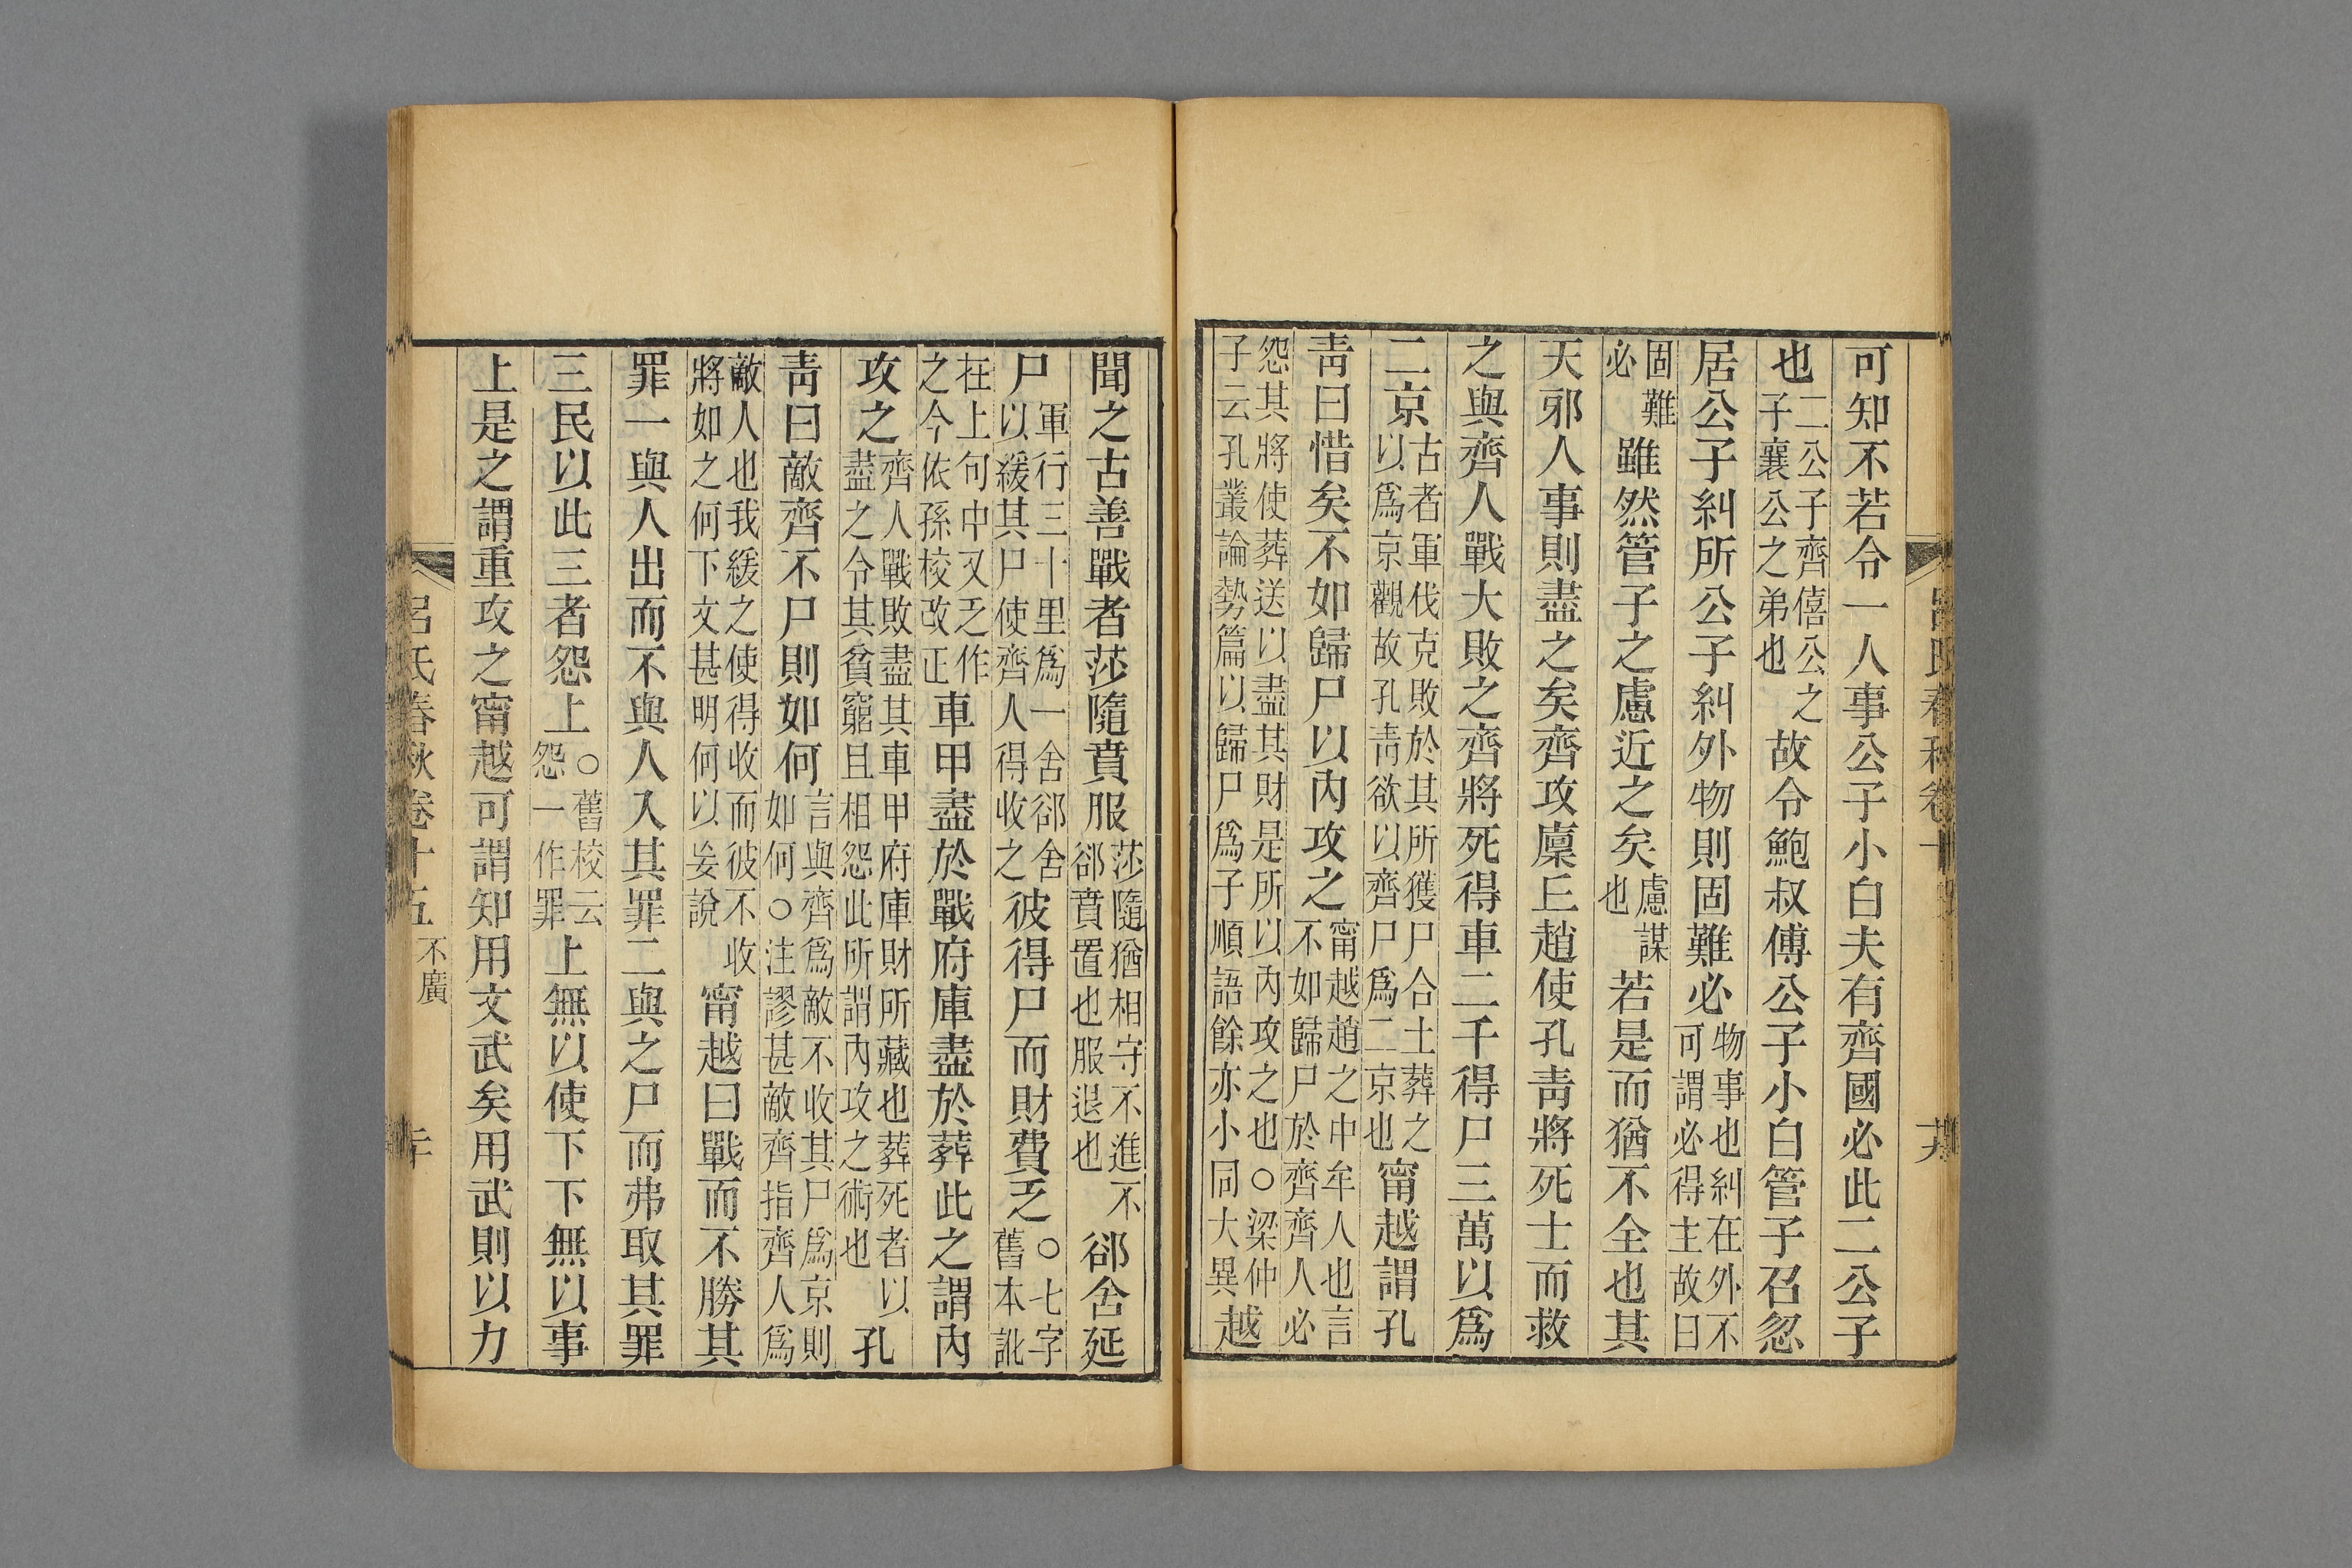 可知不若令一人事公子小白夫有齊國必此二公子
也二公子齊僖公之子襄公之弟也故令鮑叔傅公子小白管子召忽
居公子糾所公子糾外物則固難必物事也糾在外不可謂必得主故曰
固難必雖然管子之慮近之矣慮謀也若是而猶不全也其
天邪人事則盡之矣齊攻廩丘趙使孔靑將死士而救
之與齊人戰大敗之齊將死得車二千得尸三萬以爲
二京古者軍伐克敗於其所獲尸合土葬之以爲京觀故孔靑欲以齊尸爲二京也甯越謂孔
靑曰惜矣不如歸尸以內攻之甯越趙之中牟人也言不如歸尸於齊齊人必
怨其將使葬送以盡其財是所以內攻之也○梁仲子云孔叢論勢篇以歸尸爲子順語餘亦小同大異越
聞之古善戰者莎隨賁服莎隨猶相守不進不郤賁置也服退也郤舍延
尸軍行三十里爲一舍郤舍以緩其尸使齊人得收之彼得尸而財費乏○七字舊本訛
在上句中又乏作之今依孫校改正車甲盡於戰府庫盡於葬此之謂內
攻之齊人戰敗盡其車甲府庫財所藏也葬死者以盡之令其貧窮且相怨此所謂內攻之術也孔
靑曰敵齊不尸則如何言與齊爲敵不收其尸爲京則如何○注謬甚敵齊指齊人爲
敵人也我緩之使得收而彼不收將如之何下文甚明何以妄說甯越曰戰而不勝其
罪一與人出而不與人入其罪二與之尸而弗取其罪
三民以此三者怨上○舊校云怨一作罪上無以使下下無以事
上是之謂重攻之甯越可謂知用文武矣用武則以力
呂氏春秋卷十五 不廣